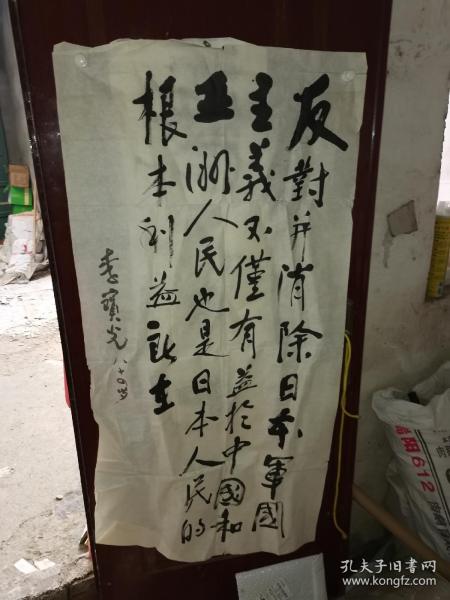 反對并消除日本軍國
主義不僅有益於中國和
亚洲人民也是日本人民的
根本利益所在
李寶光 八十四岁
洛阳612
孔夫子旧书网
www.kongfz.com